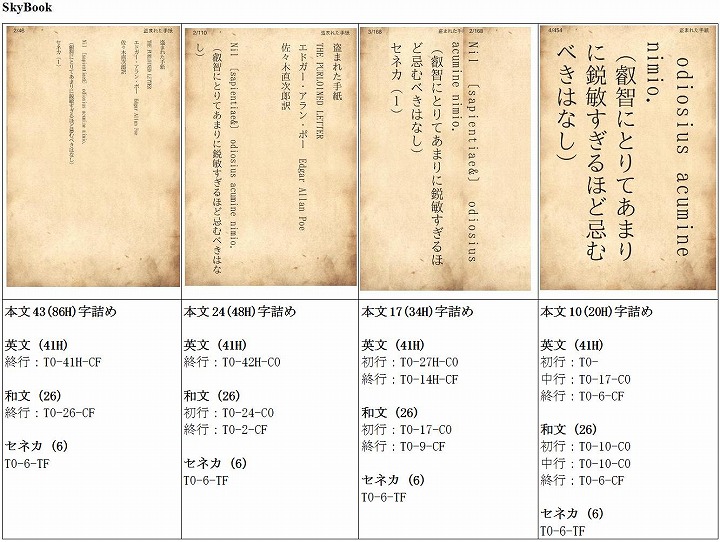 SkyBook
2/46 盗まれた手紙
盗まれた手紙
THE PURLOINED LETTER
エドガー・アラン・ポー Edgar Allan Poe
佐々木直次郎訳
Nil 〔sapientiae&〕 odiosius acumine nimio.
(叡智にとりてあまりに鋭敏すぎるほど忌むべきはなし)
セネカ(1)
2/110 盗まれた手紙
盗まれた手紙
THE PURLOINED LETTER
エドガー・アラン・ポー Edgar Allan Poe
佐々木直次郎訳
Nil 〔sapientiae&〕 odiosius acumine nimio.
(叡智にとりてあまりに鋭敏すぎるほど忌むべきはな
し)
3/168 盗まれた手 2/168
Nil 〔sapientiae&〕 odiosius
acumine nimio.
(叡智にとりてあまりに鋭敏すぎるほ
ど忌むべきはなし)
セネカ(1)
4/454 盗まれた手紙
odiosius acumine
nimio.
(叡智にとりてあまり
に鋭敏すぎるほど忌む
べきはなし)
本文43(86H)字詰め
英文(41H)
終行：T0-41H-CF
和文(26)
終行：T0-26-CF
セネカ(6)
T0-6-TF
本文24(48H)字詰め
英文(41H)
終行：T0-42H-C0
和文(26)
初行：T0-24-C0
終行：T0-2-CF
セネカ(6)
T0-6-TF
本文17(34H)字詰め
英文(41H)
初行：T0-27H-C0
終行：T0-14H-CF
和文(26)
初行：T0-17-C0
終行：T0-9-CF
セネカ(6)
T0-6-TF
本文10(20H)字詰め
英文(41H)
初行：T0-
中行：T0-17-C0
終行：T0-6-CF
和文(26)
初行：T0-10-C0
中行：T0-10-C0
終行：T0-6-CF
セネカ(6)
T0-6-TF